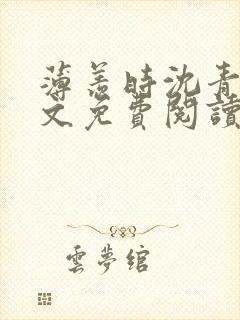 薄羞时沈青
文免費閱讀
雲夢绾